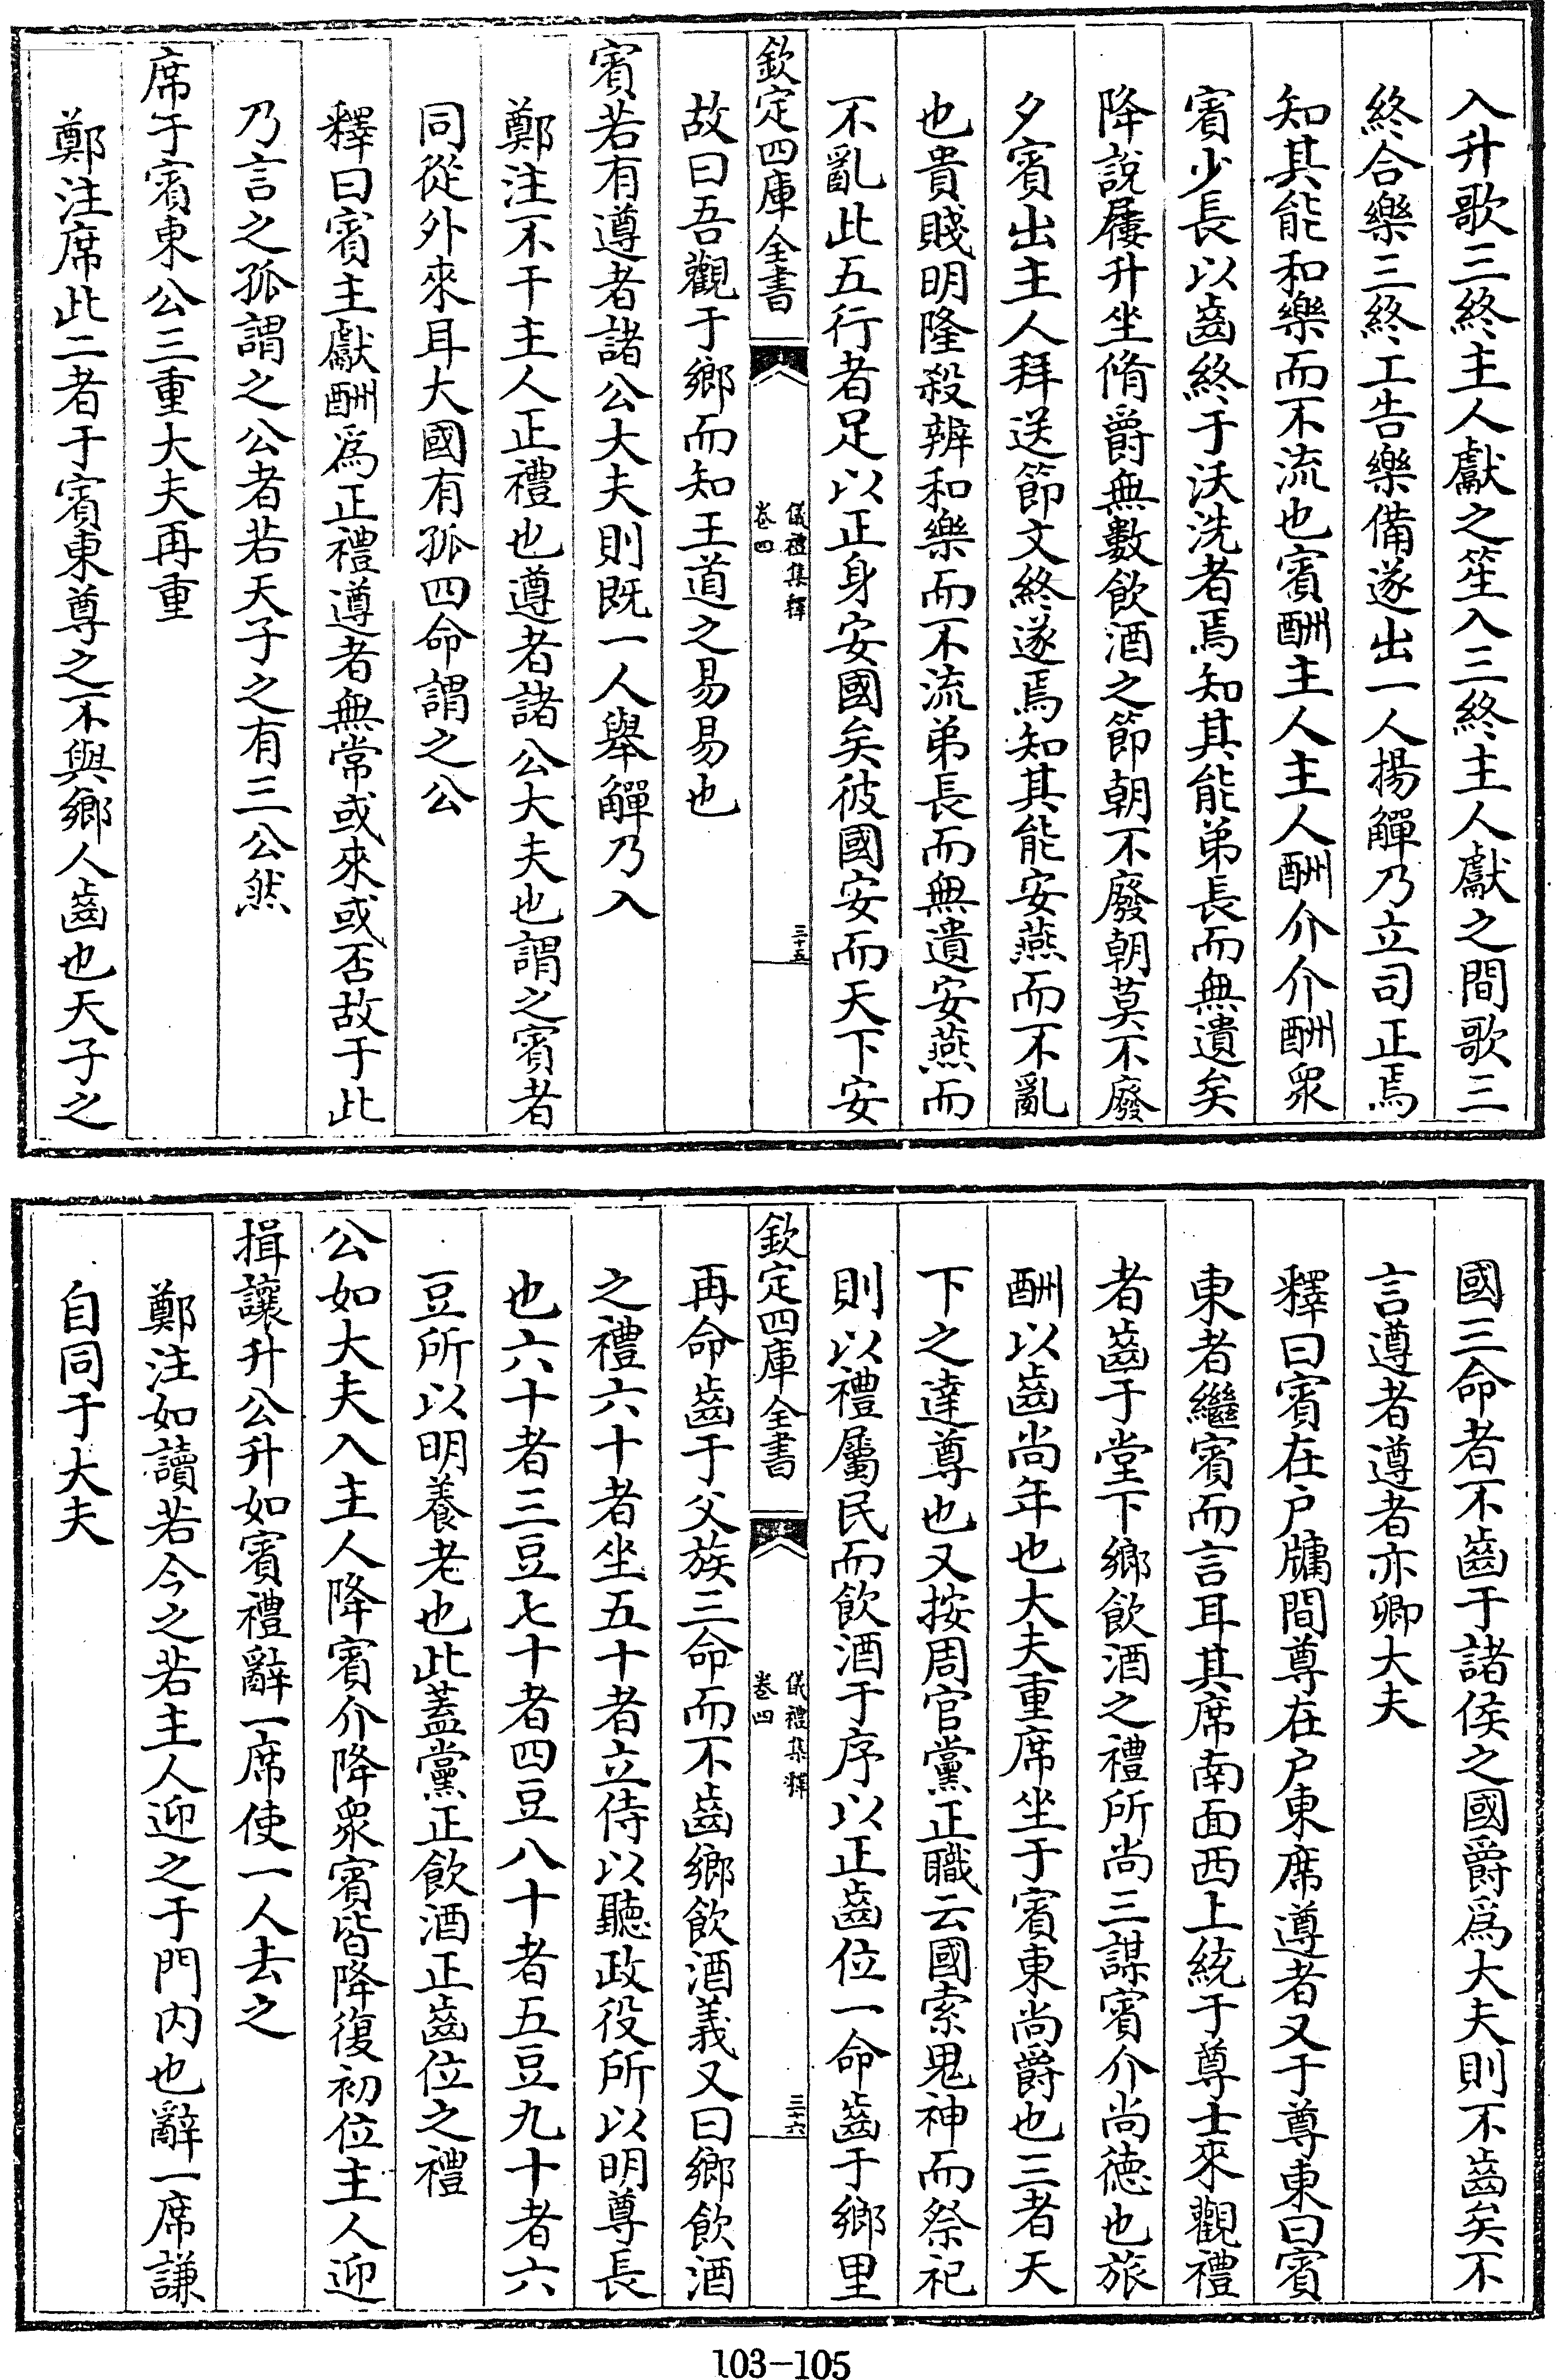 入升歌三終主人獻之笙入三終主人獻之間歌三
終合樂三終工告樂備遂出一人揚觶乃立司正焉
知其能和樂而不流也賓酬主人主人酬介介酬衆
賓少長以齒終于沃洗者焉知其能弟長而無遺矣
降說屨升坐脩爵無數飲酒之節朝不廢朝莫不廢
夕賓出主人拜送節文終遂焉知其能安燕而不亂
也貴賤明隆殺辨和樂而不流弟長而無遺安燕而
不亂此五行者足以正身安國矣彼國安而天下安
欽定四庫全書
儀禮集釋
卷四
三十五
故曰吾觀于鄉而知王道之易易也
賓若有遵者諸公大夫則既一人舉觶乃入
鄭注不干主人正禮也遵者諸公大夫也謂之賓者
同從外來耳大國有孤四命謂之公
釋曰賓主獻酬爲正禮遵者無常或來或否故于此
乃言之孤謂之公者若天子之有三公然
席于賓東公三重大夫再重
鄭注席此二者于賓東尊之不與鄉人齒也天子之
國三命者不齒于諸侯之國爵爲大夫則不齒矣不
言遵者遵者亦卿大夫
釋曰賓在戶牖間尊在戶東席遵者又于尊東曰賓
東者繼賓而言耳其席南面西上統于尊士來觀禮
者齒于堂下鄉飲酒之禮所尚三謀賓介尚德也旅
酬以齒尚年也大夫重席坐于賓東尚爵也三者天
下之達尊也又按周官黨正職云國索鬼神而祭祀
則以禮屬民而飲酒于序以正齒位一命齒于鄉里
欽定四庫全書
儀禮集釋
卷四
三十六
再命齒于父族三命而不齒鄉飲酒義又曰鄉飲酒
之禮六十者坐五十者立侍以聽政役所以明尊長
也六十者三豆七十者四豆八十者五豆九十者六
豆所以明養老也此蓋黨正飲酒正齒位之禮
公如大夫入主人降賓介降衆賓皆降復初位主人迎
揖讓升公升如賓禮辭一席使一人去之
鄭注如讀若今之若主人迎之于門内也辭一席謙
自同于大夫
103-105